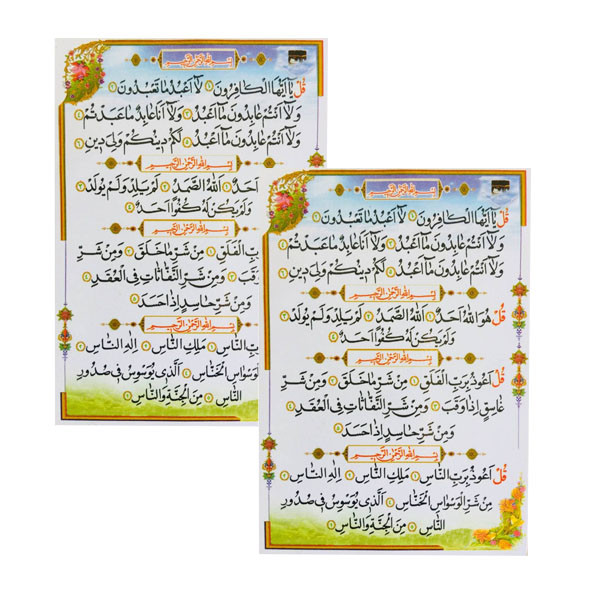 بِسْمِ اللهِ الرَّحْمٰنِ الرَّحِيمِ
قُلْ يَٓا اَيُّهَا الْكَافِرُونَۙ ١ لَٓا اَعْبُدُ مَا تَعْبُدُونَۙ ٢
وَلَٓا اَنْتُمْ عَابِدُونَ مَٓا اَعْبُدُۚ ٣ وَلَٓا اَنَا۬ عَابِدٌ مَا عَبَدْتُمْۙ ٤
وَلَٓا اَنْتُمْ عَابِدُونَ مَٓا اَعْبُدُۜ ٥ لَكُمْ دِينُكُمْ وَلِيَ دِينِ ٦
بِسْمِ اللهِ الرَّحْمٰنِ الرَّحِيمِ
اَحَدٌۚ ١ اَللّٰهُ الصَّمَدُۚ ٢ لَمْ يَلِدْ وَلَمْ يُولَدْۙ ٣
وَلَمْ يَكُنْ لَهُ كُفُوًا اَحَدٌ ٤
بِسْمِ اللهِ الرَّحْمٰنِ الرَّحِيمِ
الْفَلَقِۙ ١ مِنْ شَرِّ مَا خَلَقَۙ ٢ وَمِنْ شَرِّ
وَقَبَۙ ٣ وَمِنْ شَرِّ النَّفَّاثَاتِ فِي الْعُقَدِۙ ٤
وَمِنْ شَرِّ حَاسِدٍ اِذَا حَسَدَ ٥
بِسْمِ اللهِ الرَّحْمٰنِ الرَّحِيمِ
النَّاسِۙ ١ مَلِكِ النَّاسِۙ ٢ اِلٰهِ النَّاسِۙ ٣
الْخَنَّاسِۙ ٤ اَلَّذِي يُوَسْوِسُ فِي صُدُورِ
النَّاسِۙ ٥ مِنَ الْجِنَّةِ وَالنَّاسِ ٦
بِسْمِ اللهِ الرَّحْمٰنِ الرَّحِيمِ
قُلْ يَٓا اَيُّهَا الْكَافِرُونَۙ ١ لَٓا اَعْبُدُ مَا تَعْبُدُونَۙ ٢
وَلَٓا اَنْتُمْ عَابِدُونَ مَٓا اَعْبُدُۚ ٣ وَلَٓا اَنَا۬ عَابِدٌ مَا عَبَدْتُمْۙ ٤
وَلَٓا اَنْتُمْ عَابِدُونَ مَٓا اَعْبُدُۜ ٥ لَكُمْ دِينُكُمْ وَلِيَ دِينِ ٦
بِسْمِ اللهِ الرَّحْمٰنِ الرَّحِيمِ
قُلْ هُوَ اللّٰهُ اَحَدٌۚ ١ اَللّٰهُ الصَّمَدُۚ ٢ لَمْ يَلِدْ وَلَمْ يُولَدْۙ ٣
وَلَمْ يَكُنْ لَهُ كُفُوًا اَحَدٌ ٤
بِسْمِ اللهِ الرَّحْمٰنِ الرَّحِيمِ
قُلْ اَعُوذُ بِرَبِّ الْفَلَقِۙ ١ مِنْ شَرِّ مَا خَلَقَۙ ٢ وَمِنْ شَرِّ
غَاسِقٍ اِذَا وَقَبَۙ ٣ وَمِنْ شَرِّ النَّفَّاثَاتِ فِي الْعُقَدِۙ ٤
وَمِنْ شَرِّ حَاسِدٍ اِذَا حَسَدَ ٥
بِسْمِ اللهِ الرَّحْمٰنِ الرَّحِيمِ
قُلْ اَعُوذُ بِرَبِّ النَّاسِۙ ١ مَلِكِ النَّاسِۙ ٢ اِلٰهِ النَّاسِۙ ٣
مِنْ شَرِّ الْوَسْوَاسِ الْخَنَّاسِۙ ٤ اَلَّذِي يُوَسْوِسُ فِي صُدُورِ
النَّاسِۙ ٥ مِنَ الْجِنَّةِ وَالنَّاسِ ٦